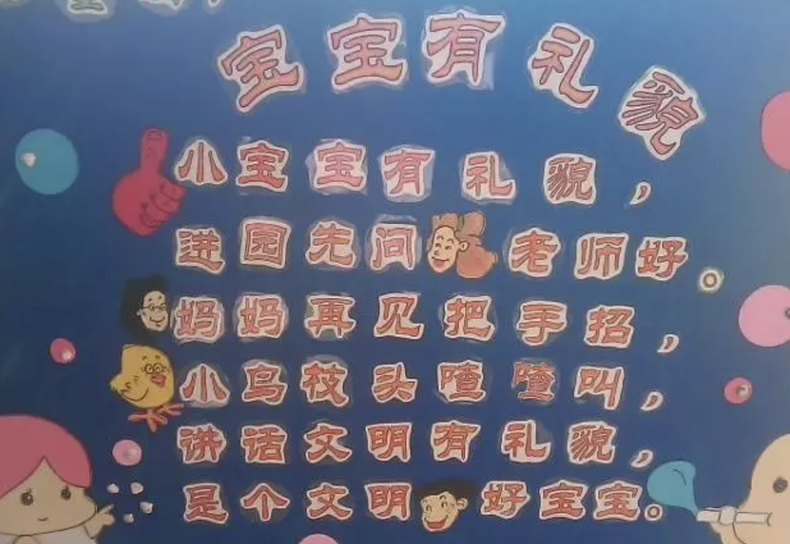 宝宝有礼貌
小宝宝有礼貌，
进园先问老师好。
妈妈再见把手招，
小鸟枝头喳喳叫，
讲话文明有礼貌，
是个文明好宝宝。